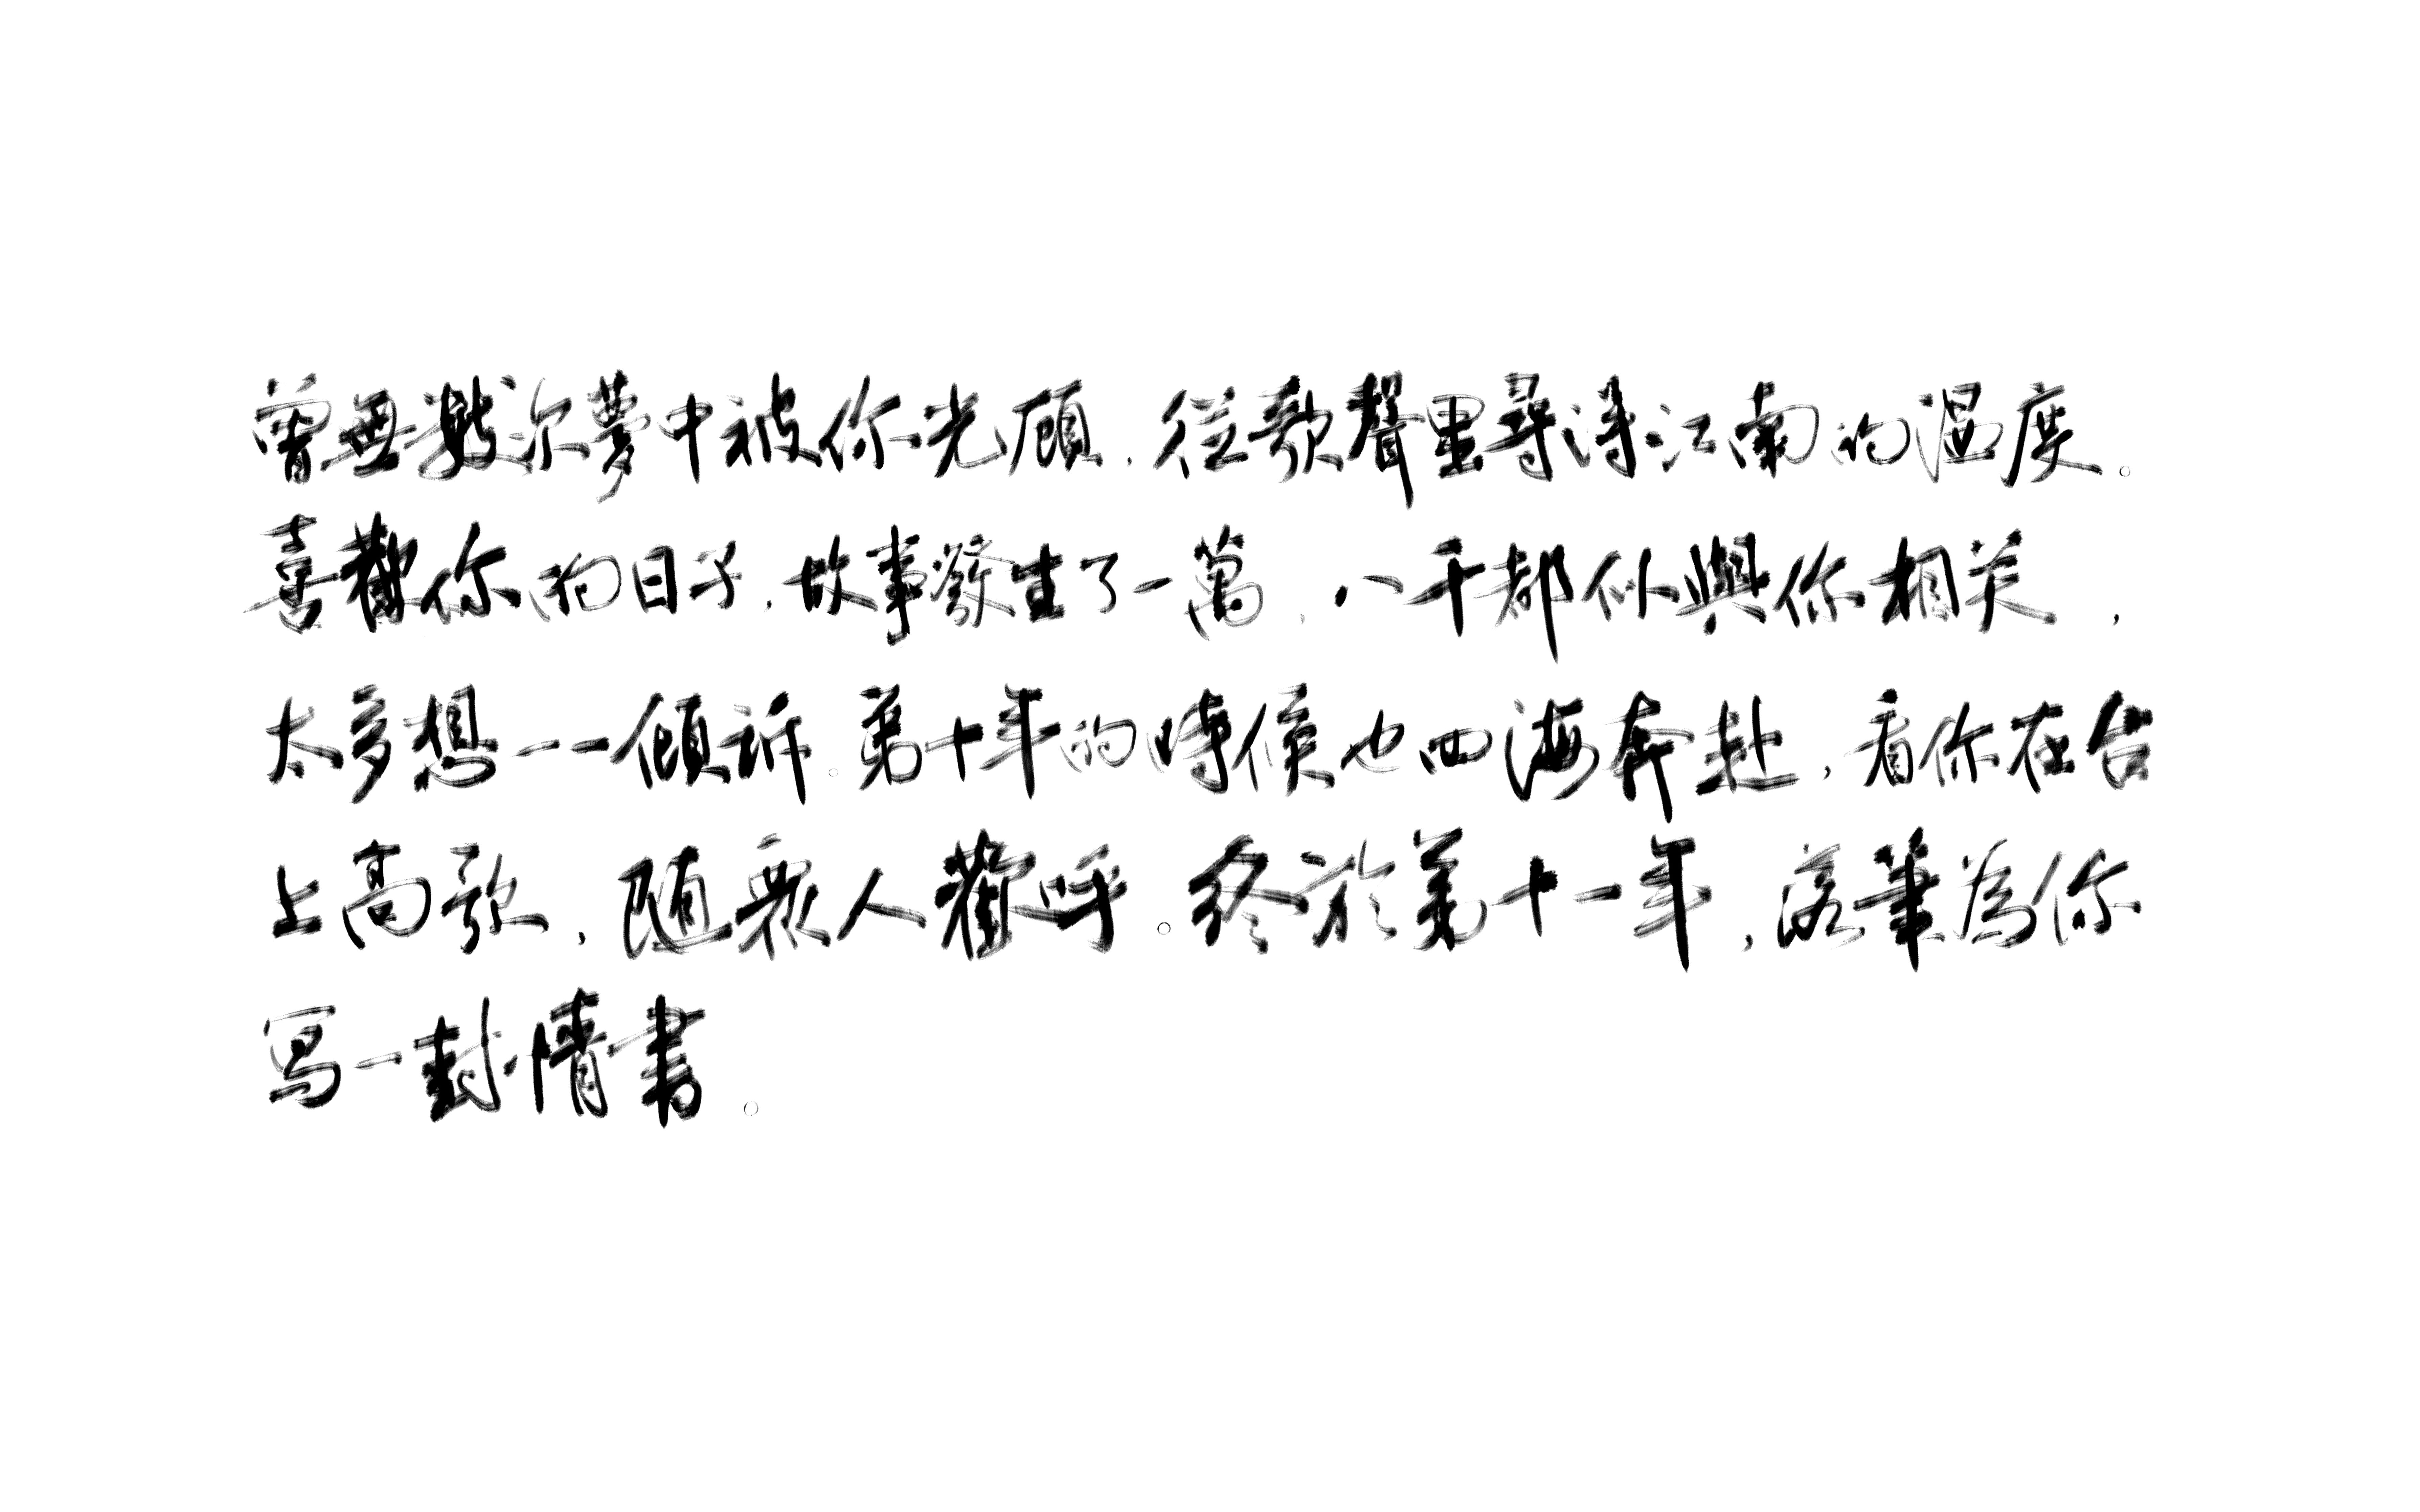 曾無數次夢中被你光顧，從歌聲里尋得江南的溫度。
喜歡你的日子，故事發生了一萬，八千都似與你相关，
太多想一一傾訴。第十年的時候也四海奔赴，看你在台
上高歌，随眾人歡呼。终於第十一年，落筆為你
寫一封情書。